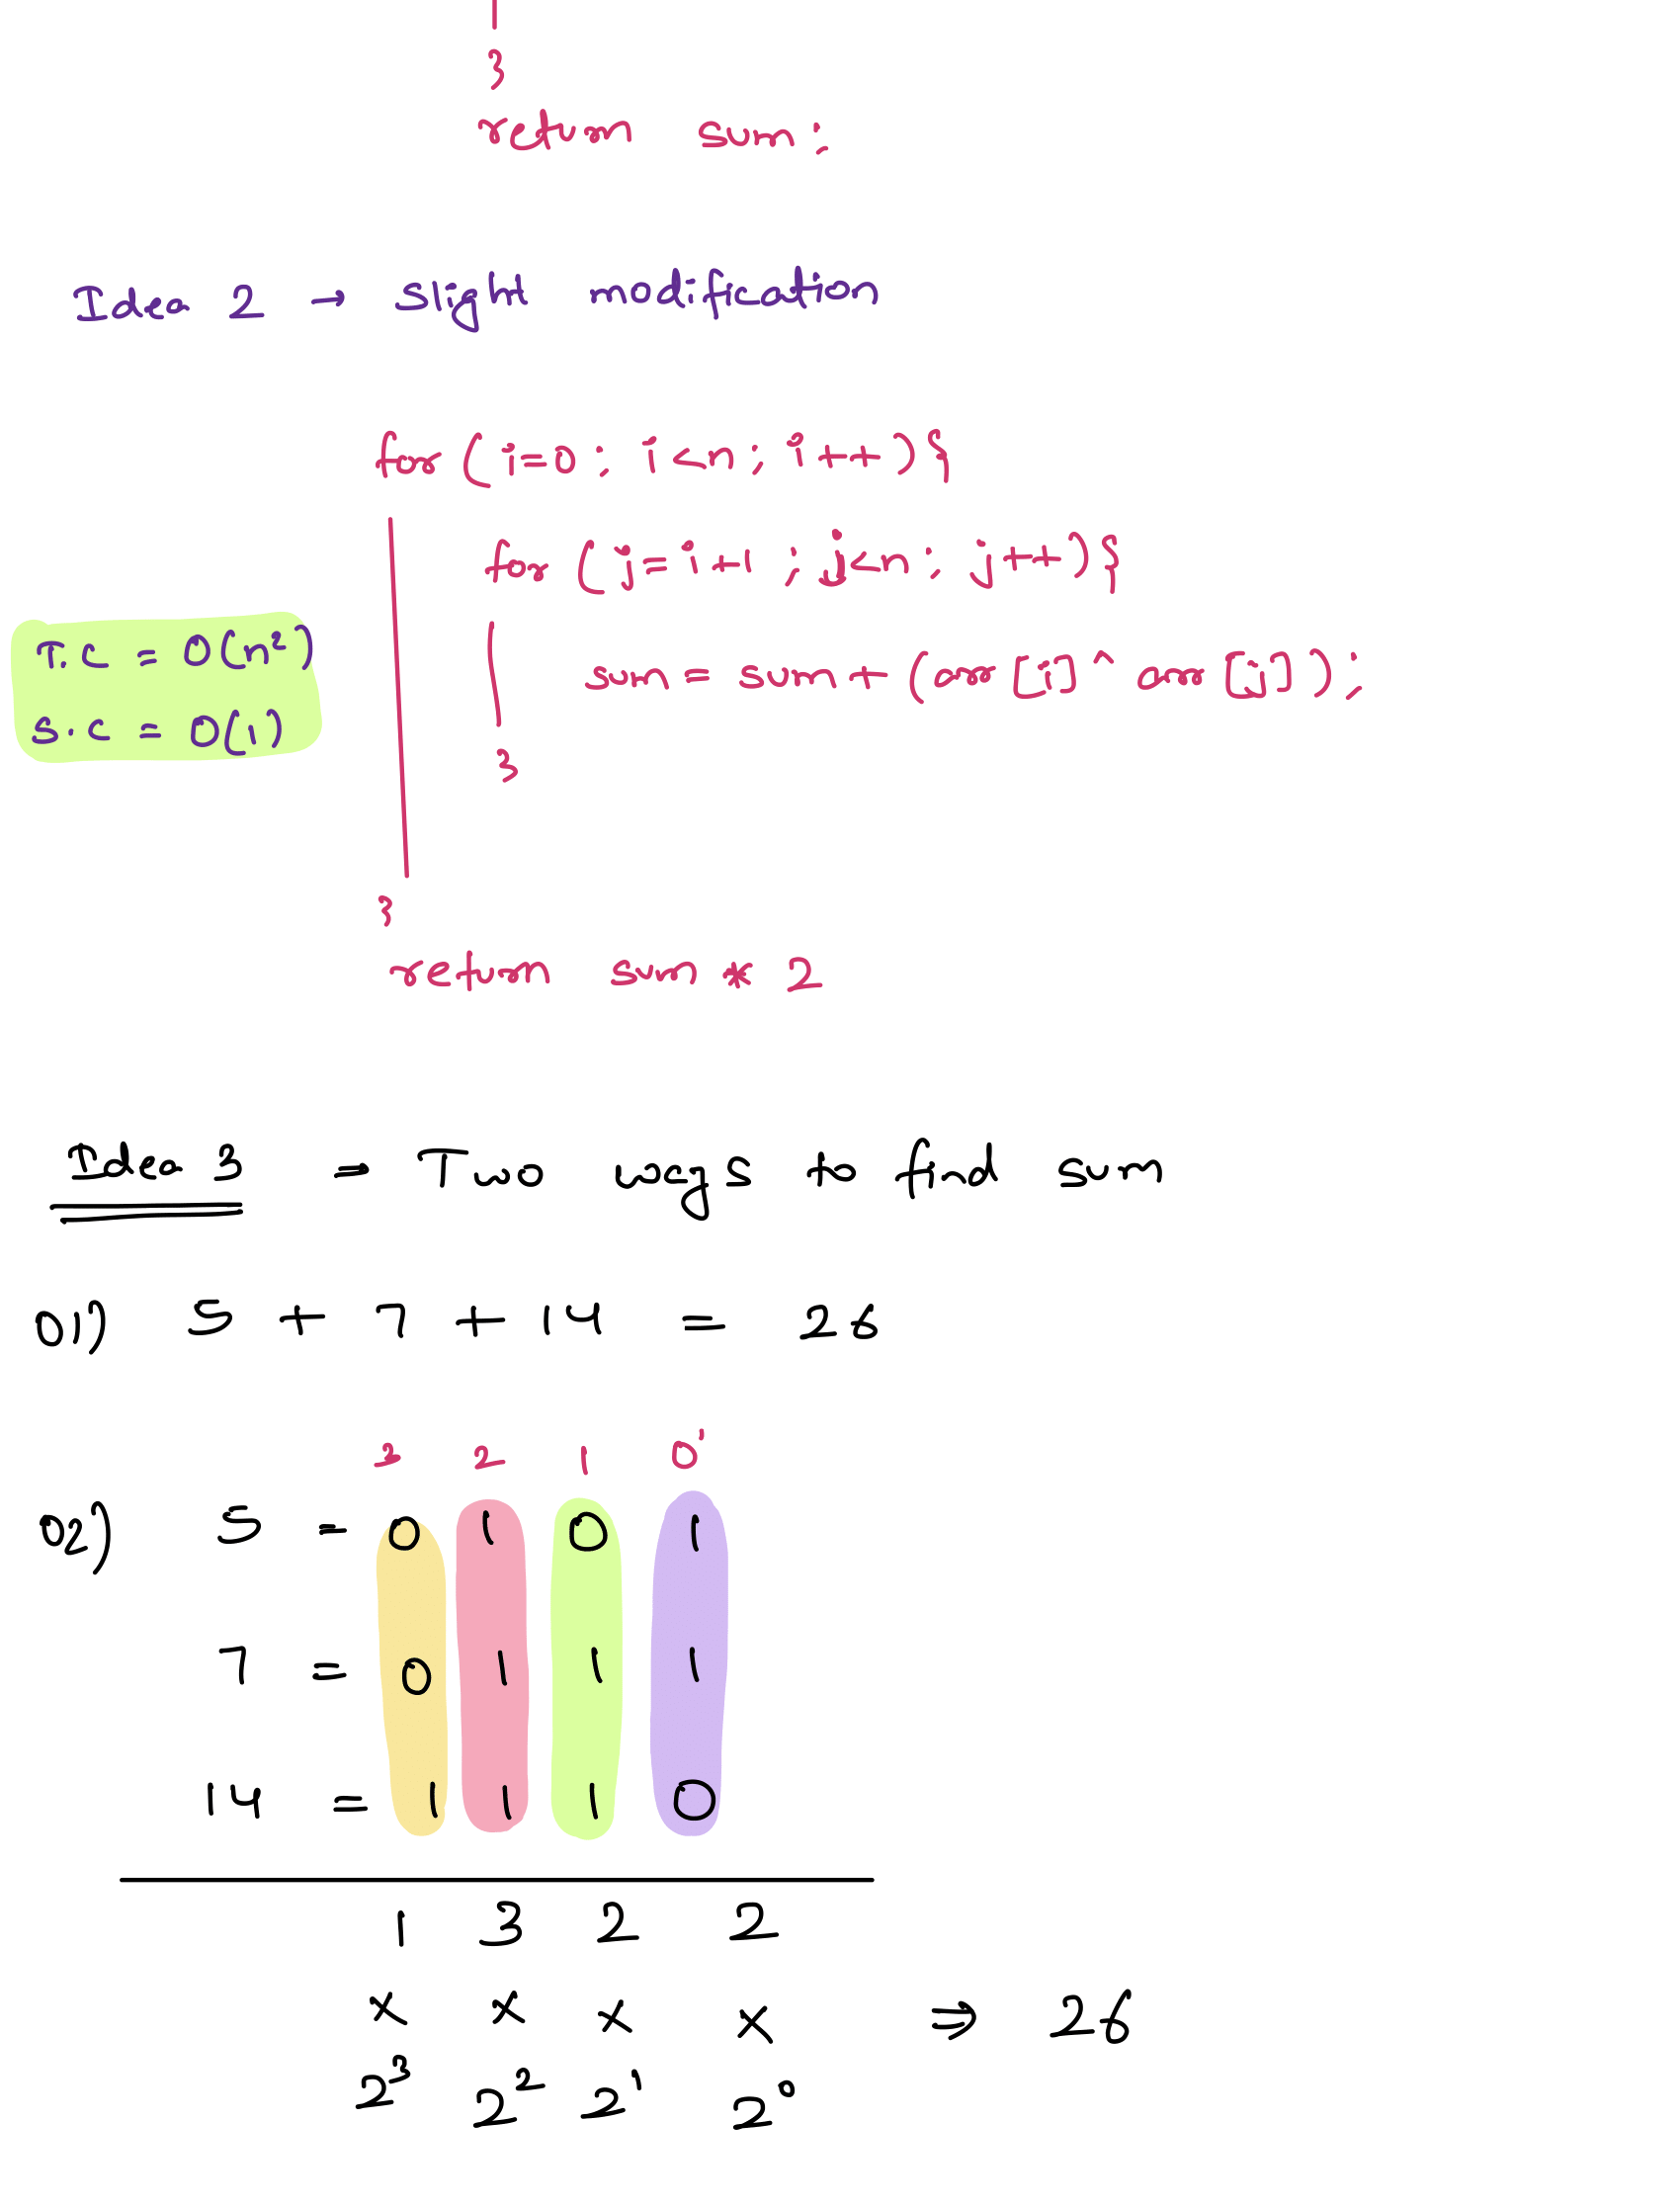 }
return sum;
Idea 2 → slight modification
for (i=0; i<n; i++){
for (j=i+1; j<n; j++){
T.C = O(n²)
sum = sum + (arr[i] ^ arr[j]);
S.C = O(1)
}
}
return sum * 2
Idea 3 = Two ways to find sum
01) 5 + 7 + 14 = 26
3 2 1 0
02) 5 = 0 1 0 1
7 = 0 1 1 1
14 = 1 1 1 0
1 3 2 2
x x x x ⇒ 26
2³ 2² 2¹ 2⁰